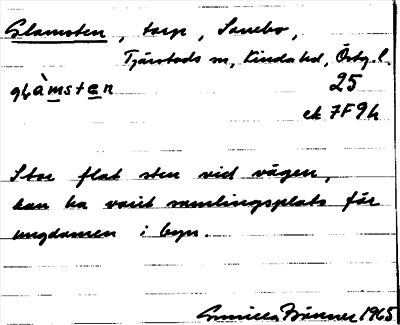 Glamsten, torp, Sanebo,
Tjärstads sn, Kinda hd, Östg. l.
glàmsten 25
ek 7F9h
Stor flat sten vid vägen,
kan ha varit samlingsplats för
ungdomen i byn.
Gunilla Brunner 1965